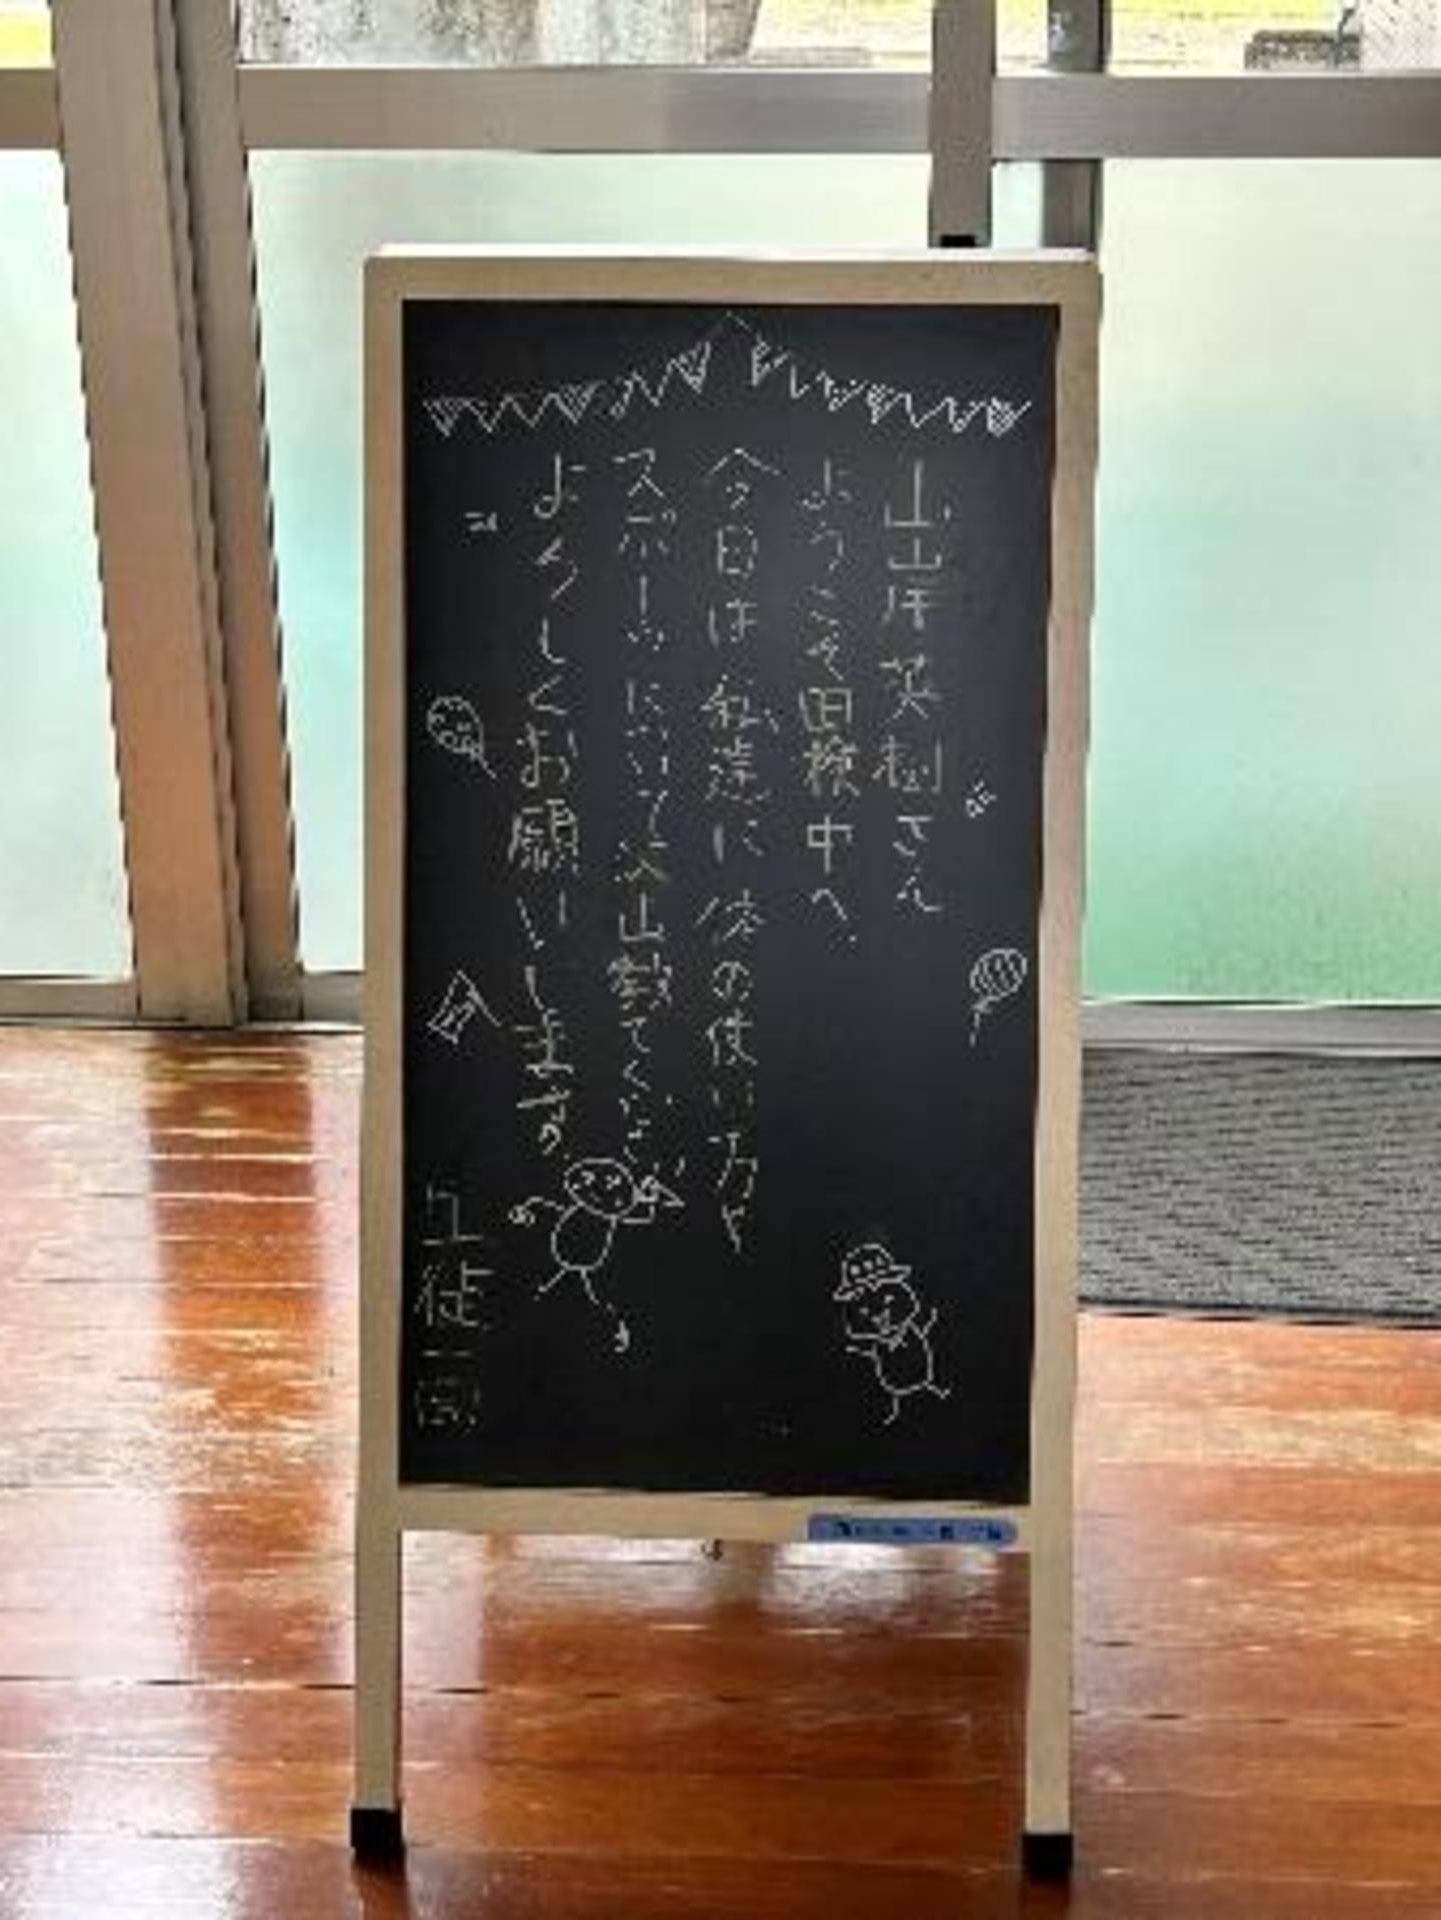 山岸英樹さん
ようこそ田検中へ
今日は私達に体の使い方と
スポーツについて沢山教てくださ
よろしくお願いします。
生徒一同